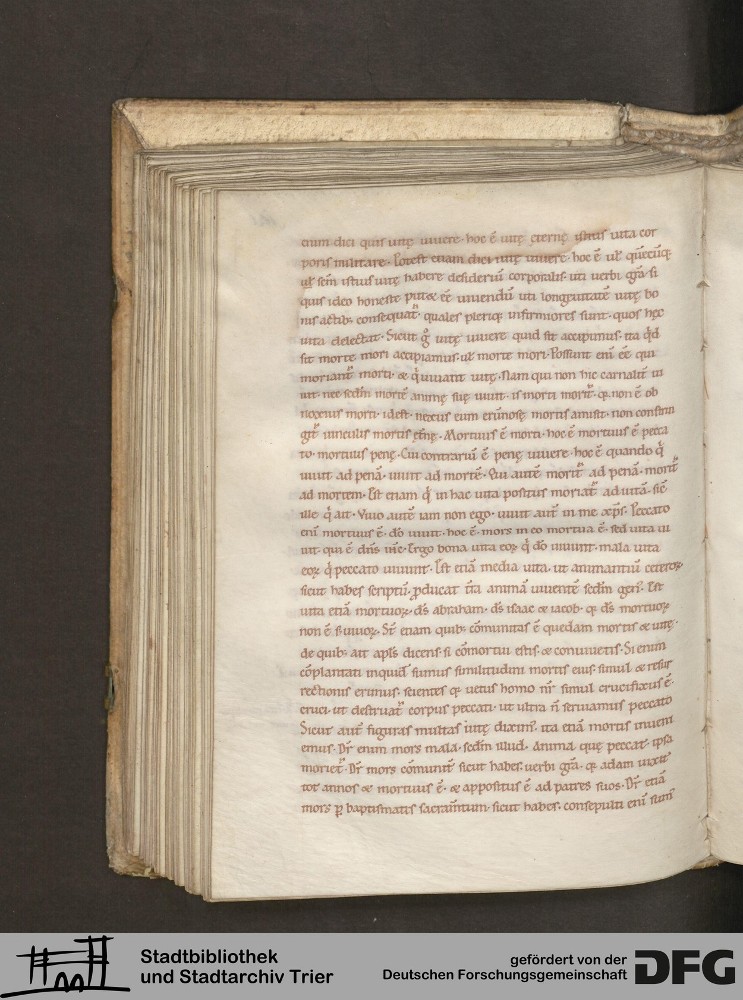 enim dici quis uitę uiuere · hoc ē uitę ęternę istius uita cor
poris militare · Potest etiam dici uitę uiuere · hoc ē ul̄
ul̄ istius uitę habere desideriū corporalis · uti uerbi gr̄a · si
quis ideo honeste putet ēē uiuendū uti longeuitatē uitę bo
nis actib; consequat᷑ · quales pleriq; infirmiores sunt · quos hęc
uita delectat · Sicut g̊ uitę uiuere quid sit accipimus · ita qͥd
sit morte mori accipiamus · ul̄ morti mori · Possunt enī ēē qui
moriant᷑ morti · & qͥ uiuant uitę · Nam qui non hic carnalit᷑ ui
uit · nec sedm̄ mortē animę suę uiuit · is morti morit᷑ · q; non ē ob
noxius morti · idest · nexus eum erūnosę mortis amisit · non constrin
git᷑ uinculis mortis ęt̄nę · Mortuus ē morti · hoc ē mortuus ē pecca
to · mortuus penę · Cui contrariū ē penę uiuere · hoc ē quando qͥ
uiuit ad penā · uiuit ad mortē · Qui autē morit᷑ ad penā · morit᷑
ad mortem · Est etiam qͥ in hac uita positus moriat᷑ ad uitā · sic̄
ille qͥ ait · Viuo autē iam non ego · uiuit aut̄ in me xp̄s · Peccato
enī mortuus ē · dō uiuit · hoc ē · mors in eo mortua ē · sed uita ui
uit · qui ē dn̄s ih̄c · Ergo bona uita eoꝝ qͥ dō uiuunt · mala uita
eoꝝ qͥ peccato uiuunt · Est etiā media uita · ut animantiū ceteroꝝ
sicut habes scriptū · ꝓducat t̄ra animā uiuentē sedm̄ gen᷑ · Est
uita etiā mortuoꝝ · ds̄ abraham · ds̄ isaac & iacob · q; ds̄ mortuoꝝ
non ē s; uiuoꝝ · St̄ etiam quib; cōmunitas ē quędam mortis & uitę ·
de quib; ait apl̄s dicens · si cōmortui estis · & conuiuetis · Si enim
cōplantati inquid sumus similitudini mortis eius · simul & resur
rectionis erimus · scientes q; uetus homo nr̄ simul crucifixus ē
cruci · ut destruat᷑ corpus peccati · ut ultra n̄ seruiamus peccato
Sicut aut̄ figuras multas uitę dixim᷒ · ita etiā mortis inueni
emus · Dr̄ enim mors mala · sedm̄ illud · Anima quę peccat · ipsa
moriet᷑ · Dr̄ mors cōmunit᷑ sicut habes · uerbi gr̄a · q; adam uixit
tot annos & mortuus ē · & appositus ē ad patres suos · Dr̄ etiā
mors ꝑ baptismatis sacram̄tum · sicut habes · consepulti enī sum᷒
Stadtbibliothek
und Stadtarchiv Trier
gefördert von der
Deutschen Forschungsgemeinschaft
DFG